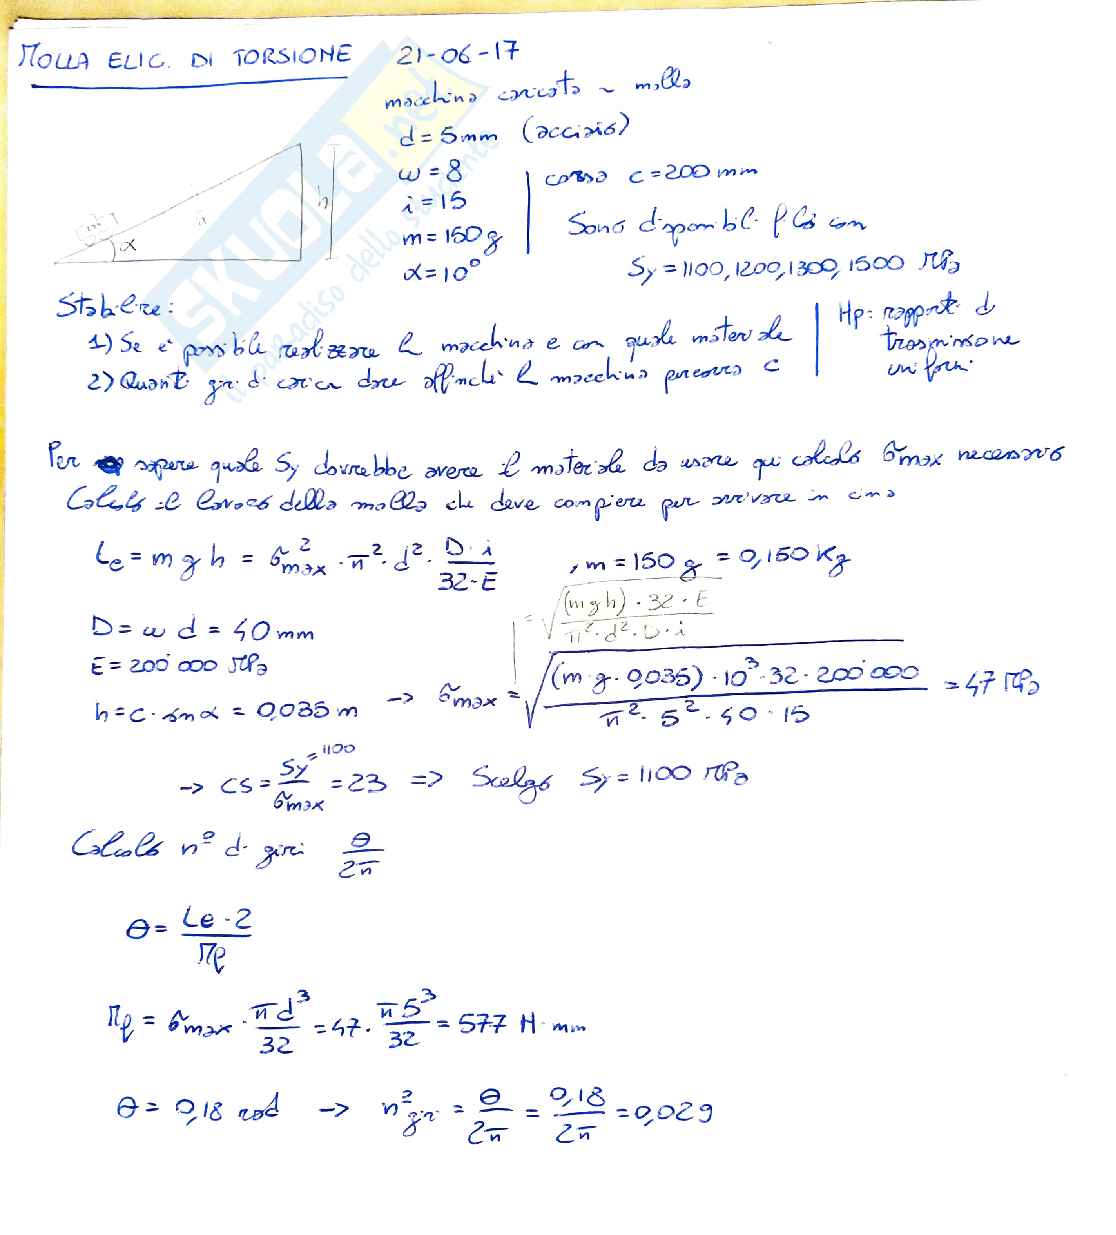 MOLLA ELIC. DI TORSIONE 21-06-17
macchina caricata ~ molla
d = 5mm (acciaio)
ω = 8
i = 15
m = 150 g
α = 10°
corsa c = 200 mm
Sono disponibili fili con
Sy = 1100, 1200, 1300, 1500 MPa
m
α
h
Stabilire:
1) Se è possibile realizzare la macchina e con quale materiale
2) Quanti giri di carica dare affinché la macchina percorra c
Hp: rapporti di
trasmissione
uniformi
Per sapere quale Sy dovrebbe avere il materiale da usare qui calcolo σmax necessario
Calcolo il lavoro della molla che deve compiere per arrivare in cima
Le = m g h = σ²max · π² · d² · D · i / 32 · E , m = 150 g = 0,150 Kg
= √(m g h) · 32 · E / π² · d² · D · i
D = ω d = 40 mm
E = 200'000 MPa
h = c · sin α = 0,035 m -> σmax = √(m · g · 0,035) · 10³ · 32 · 200'000 / π² · 5² · 40 · 15 = 47 MPa
-> CS = Sy = 1100 / σmax = 23 => Scelgo Sy = 1100 MPa
Calcolo n° di giri θ / 2π
θ = Le · 2 / Mf
Mf = σmax · πd³ / 32 = 47 · π5³ / 32 = 577 N · mm
θ = 0,18 rad -> n°giri = θ / 2π = 0,18 / 2π = 0,029
SKUOLA.net
il paradiso dello studente